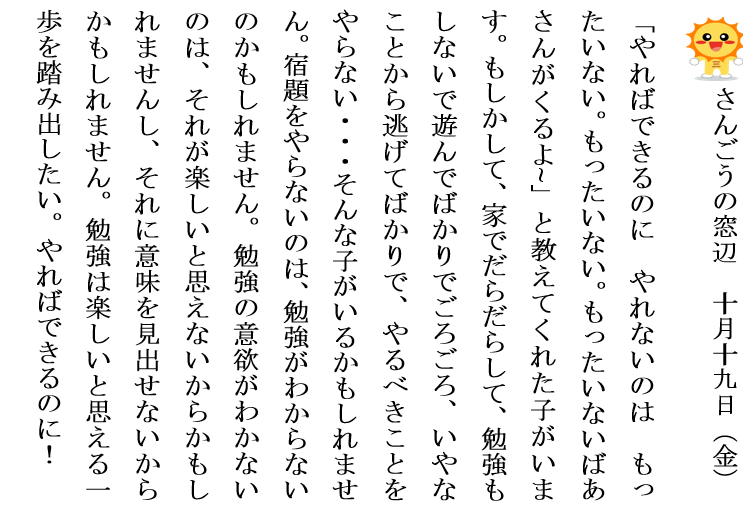 さんごうの窓辺　十月十九日（金）
「やればできるのに　やれないのは　もっ
たいない。もったいない。もったいないばあ
さんがくるよ～」と教えてくれた子がいま
す。もしかして、家でだらだらして、勉強も
しないで遊んでばかりでごろごろ、いやな
ことから逃げてばかりで、やるべきことを
やらない・・・そんな子がいるかもしれませ
ん。宿題をやらないのは、勉強がわからない
のかもしれません。勉強の意欲がわかない
のは、それが楽しいと思えないからかもし
れませんし、それに意味を見出せないから
かもしれません。勉強は楽しいと思える一
歩を踏み出したい。やればできるのに！